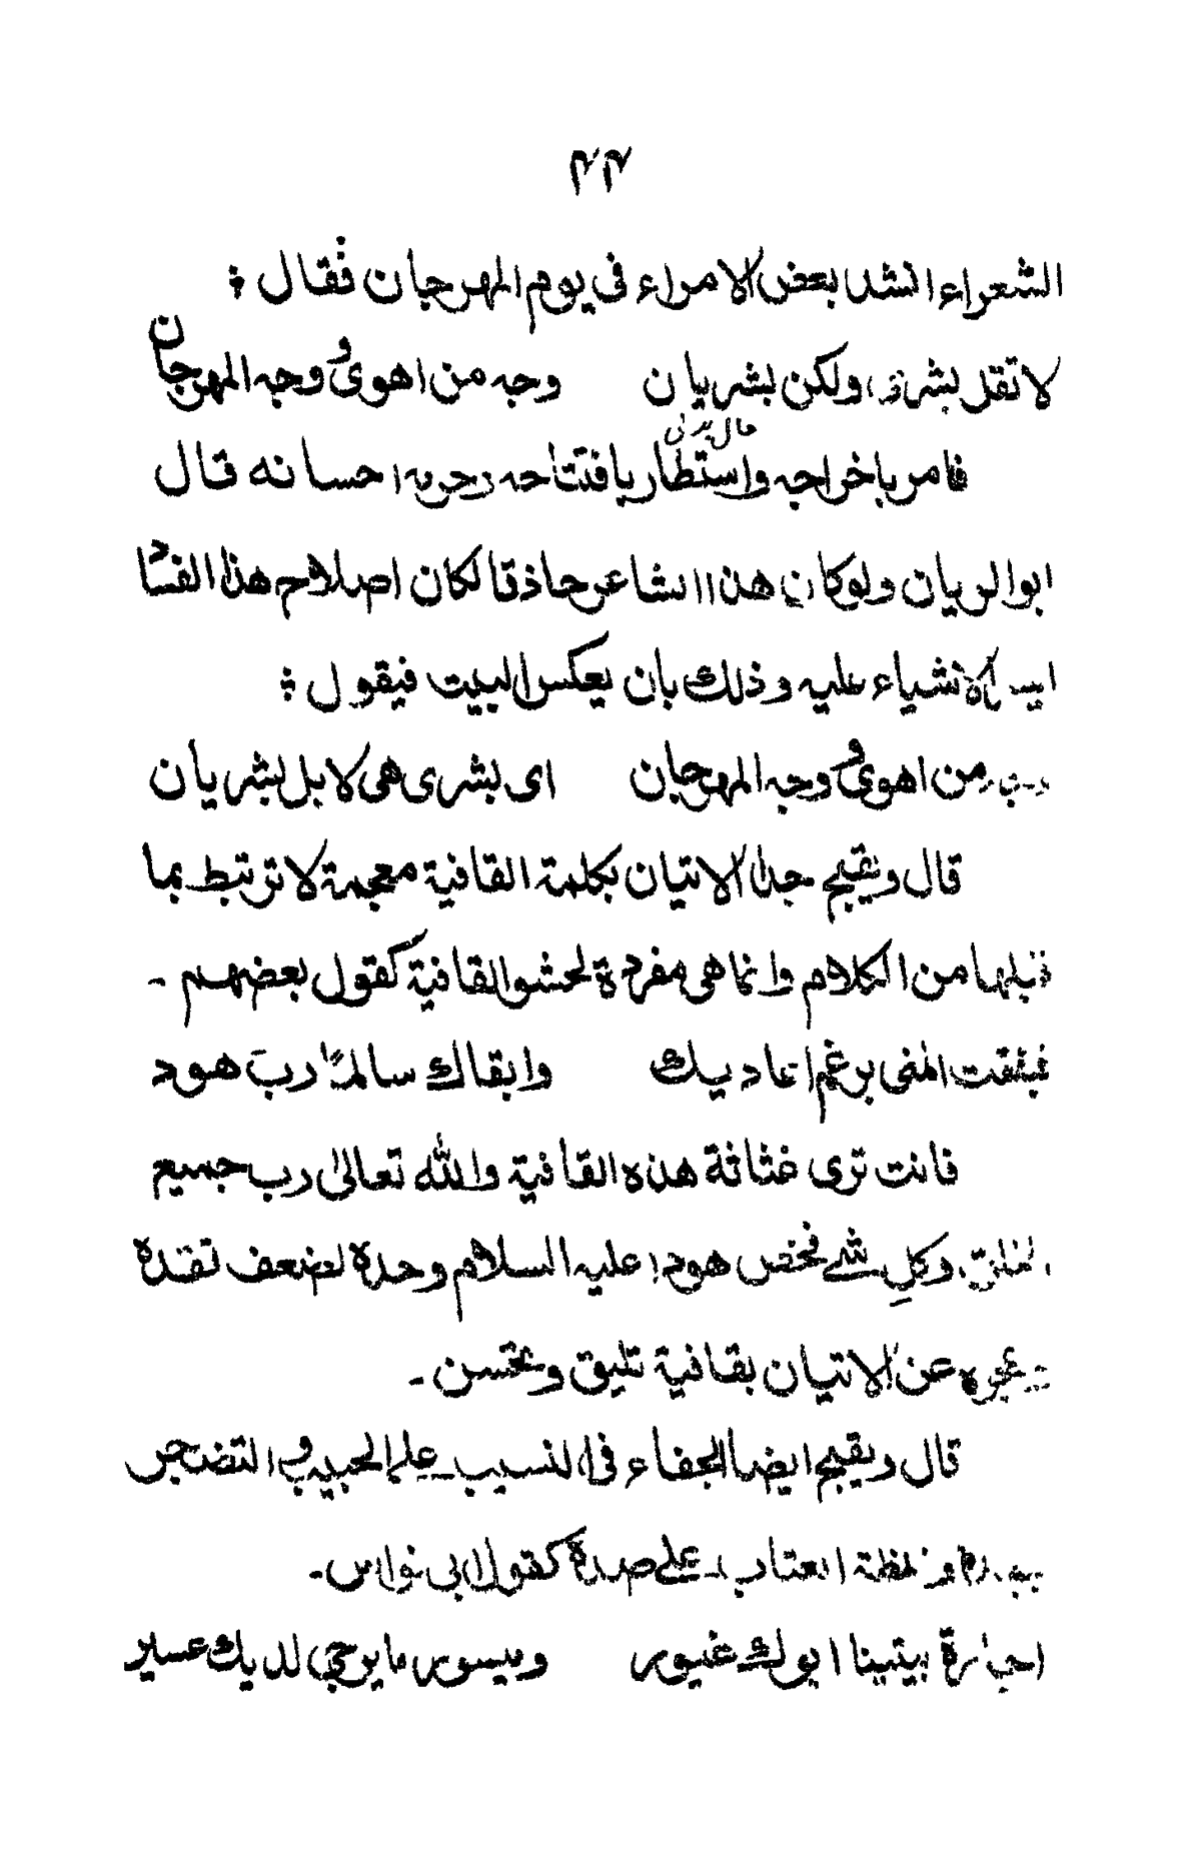 ۴۴
الشعراء انشد بعض الامراء فى يوم المهرجان فقال ؛
لا تقل بشرى ولكن بشريان وجه من اهوى ووجه المهرجان
فامر باخراجه واستطار بافتتاحه احسانه قال
ابو الريان ولو كان هذا الشاعر حاذقا لكان اصلاح هذا الفساد
ايسر الاشياء عليه وذلك بان يعكس البيت فيقول ؛
وجه من اهوى ووجه المهرجان اى بشرى هى لا بل بشريان
قال ويقبح جدا الاتيان بكلمة القافية معجمة لا ترتبط بما
قبلها من الكلام وانما هى مفردة لحشو القافية كقول بعضهم -
فبلغت المنى برغم اعاديك وابقاك سالمًا رب هود
فانت ترى غثاثة هذه القافية والله تعالىٰ رب جميع
الخلق وكلِ شے فخص هودا عليه السلام وحدة لضعف نقدة
وعجزه عن الاتيان بقافية تليق وتحسن -
قال ويقبح ايضا الجفاء فى النسيب على الحبيب والتضجر
ببعده وغلظة العتاب على صدة كقول ابى نواس -
اجارة بيتينا ابوك غيور وميسور ما يرجى لديك عسير